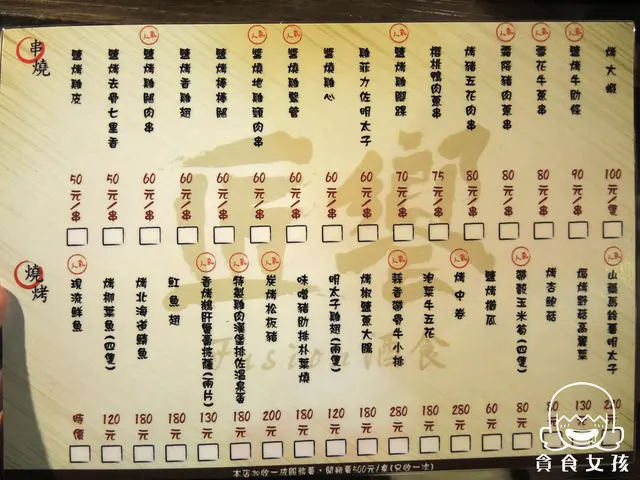 串燒
鹽烤雞皮 50元/串
鹽烤去骨七里香 50元/串
人氣 鹽烤雞腿肉串 60元/串
鹽烤香雞翅 60元/串
鹽烤棒棒腿 60元/串
人氣 醬燒地雞頸肉串 60元/串
人氣 醬燒雞腎管 60元/串
醬燒雞心 60元/串
雞菲力佐明太子 60元/串
人氣 鹽烤雞腳踝 70元/串
櫻桃鴨肉蔥串 75元/串
烤豬五花肉串 80元/串
人氣 霜降豬肉蔥串 80元/串
人氣 雪花牛蔥串 80元/串
人氣 鹽烤牛肋條 90元/串
烤大蝦 100元/隻
燒烤
人氣 現流鮮魚 時價
烤柳葉魚(四隻) 120元
烤北海道鯖魚 180元
魟魚翅 180元
人氣 130元
人氣 特製雞肉漢堡排佐溫泉蛋 180元
人氣 炭烤松板豬 200元
味噌豬肋排朴葉燒 180元
明太子雞翅(兩隻) 120元
烤椒鹽蔥大腸 180元
人氣 蒜香帶骨牛小排 280元
泡菜牛五花 180元
人氣 烤中卷 280元
鹽烤櫛瓜 60元
人氣 帶殼玉米筍(四隻) 80元
烤杏鮑菇
130元
人氣 200元
豆饗
Fusion酒食
貪食女孩